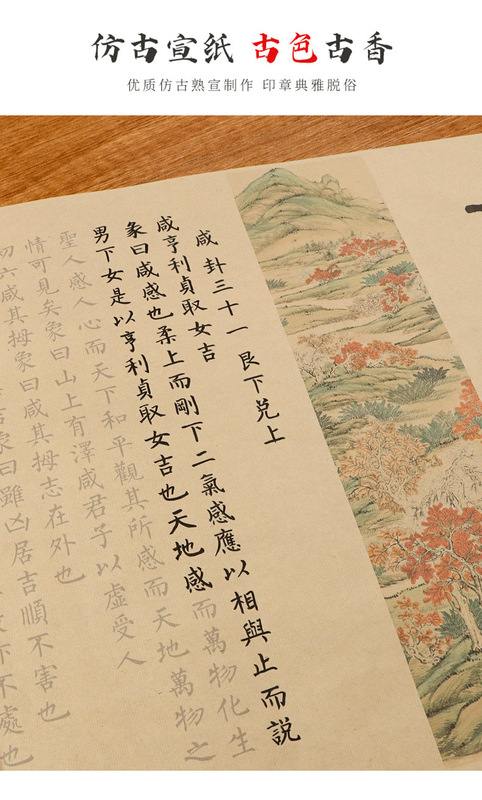 仿古宣纸 古色古香
优质仿古熟宣制作 印章典雅脱俗
咸 卦三十一 艮下兑上
咸亨利貞取女吉
彖曰咸感也柔上而剛下二氣感應以相與止而説
男下女是以亨利貞取女吉也天地感而萬物化生
聖人感人心而天下和平觀其所感而天地萬物之
情可見矣象曰山上有澤咸君子以虛受人
初六咸其拇象曰咸其拇志在外也
吉象曰雖凶居吉順不害也
亦不處也